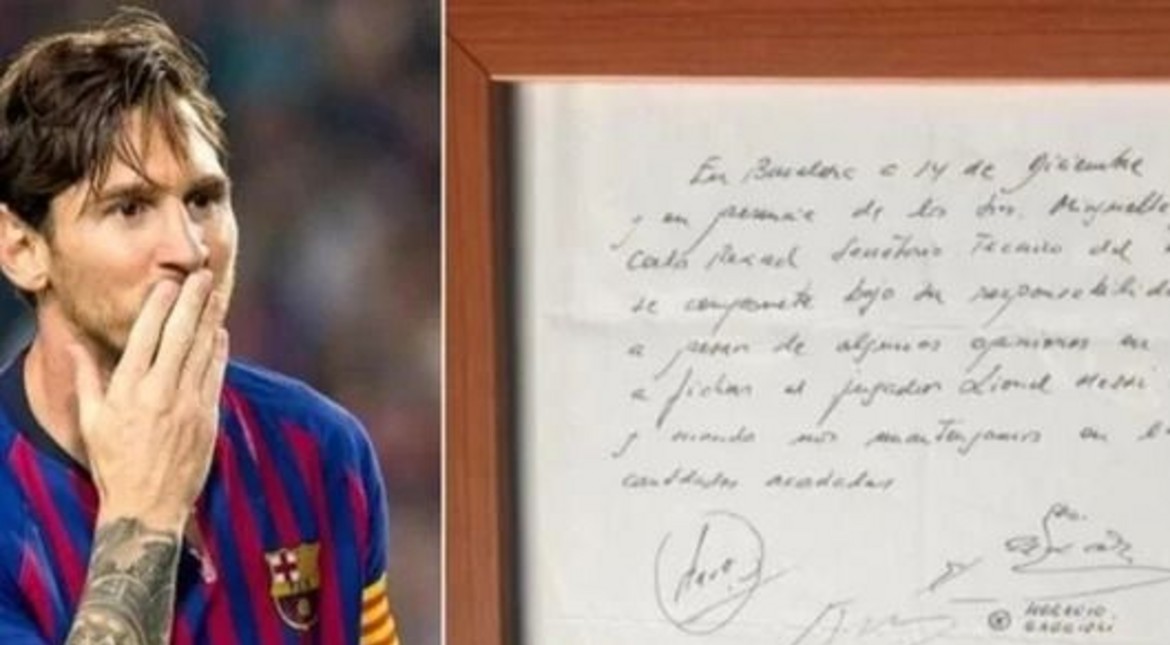 En Barcelona a 14 de Diciembre
y en presencia de los Srs. Minguella
Carlo Rexach Secretario Tecnico del
se compromete bajo su responsabilid
a pesar de algunas opiniones en
a fichar al jugador Lionel Messi
y siempre nos mantengamos en l
cantidades acordadas
HORACIO
GAGGIOLI